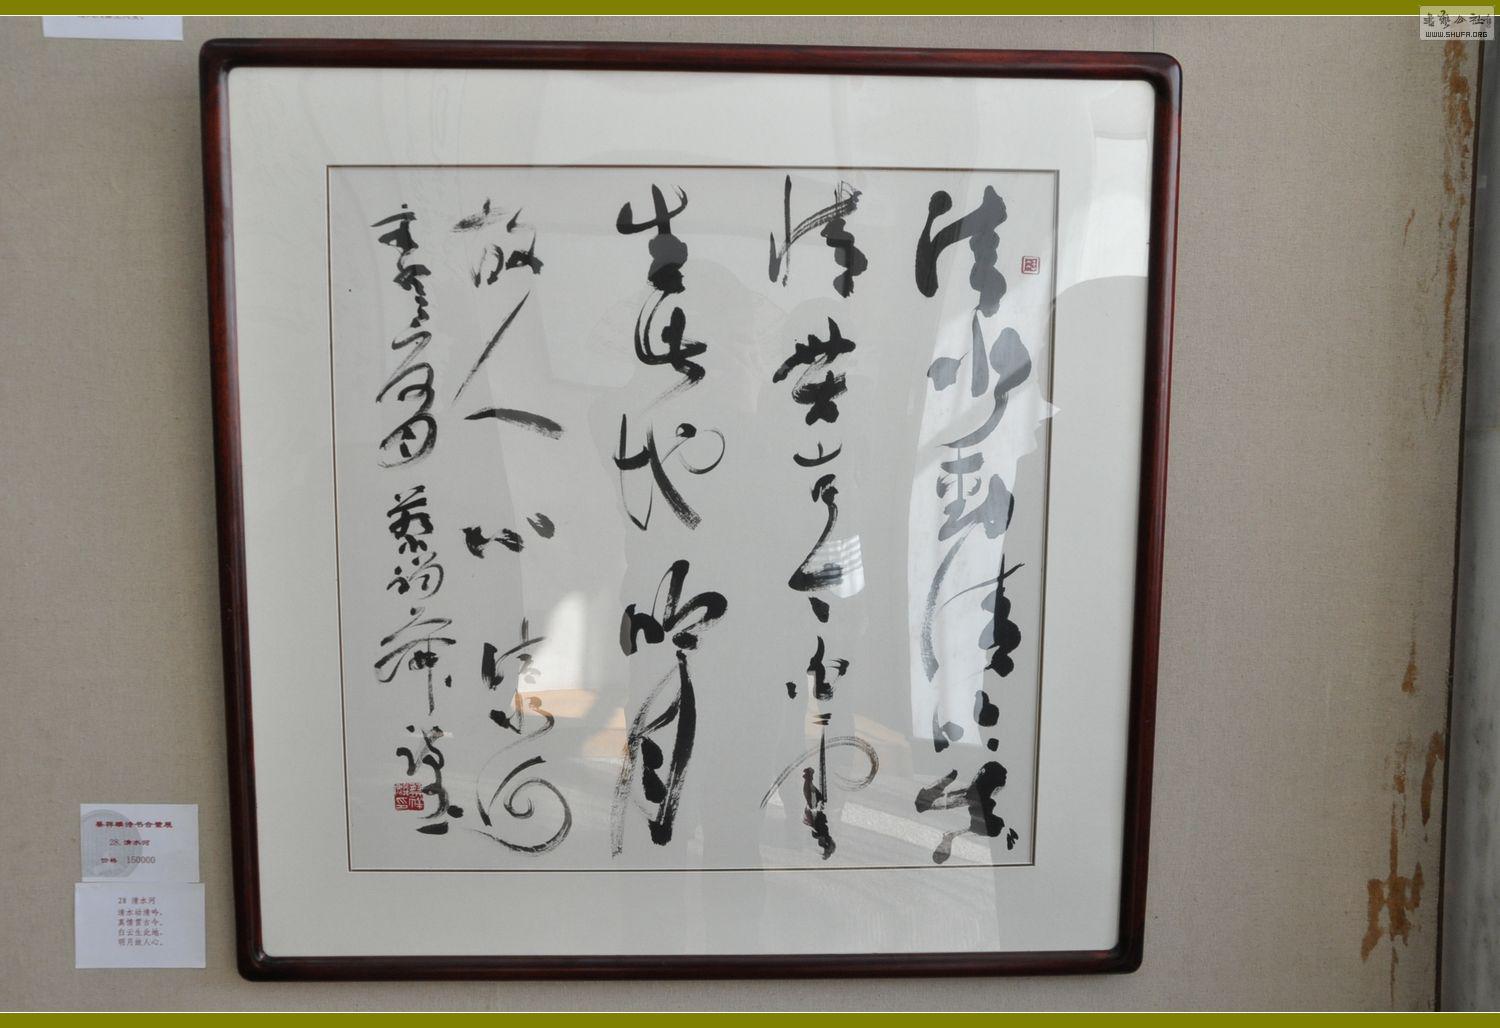 清水動清吟真
情貫古今白雲
生此地明月
故人心 清水河
蔡祥麟诗书合璧展
28.清水河
价格 150000
28 清水河
清水动清吟，
真情贯古今。
白云生此地，
明月故人心。
書法公社
WWW.SHUFA.ORG